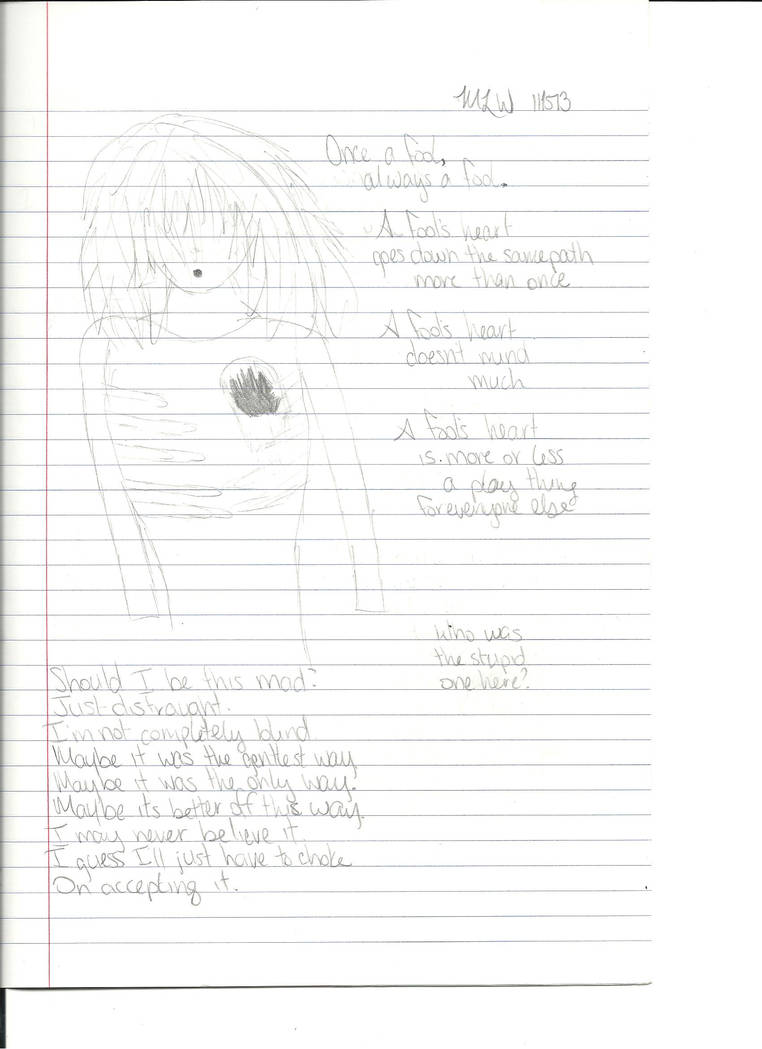 MLW 11/5/13
Once a fool,
always a fool.
A fool's heart
goes down the same path
more than once
A fool's heart
doesn't mind
much
A fool's heart
is more or less
a play thing
for everyone else
who was
the stupid
one here?
Should I be this mad?
Just distraught.
I'm not completely blind
Maybe it was the gentlest way
Maybe it was the only way.
Maybe its better off this way.
I may never believe it.
I guess I'll just have to choke
On accepting it.